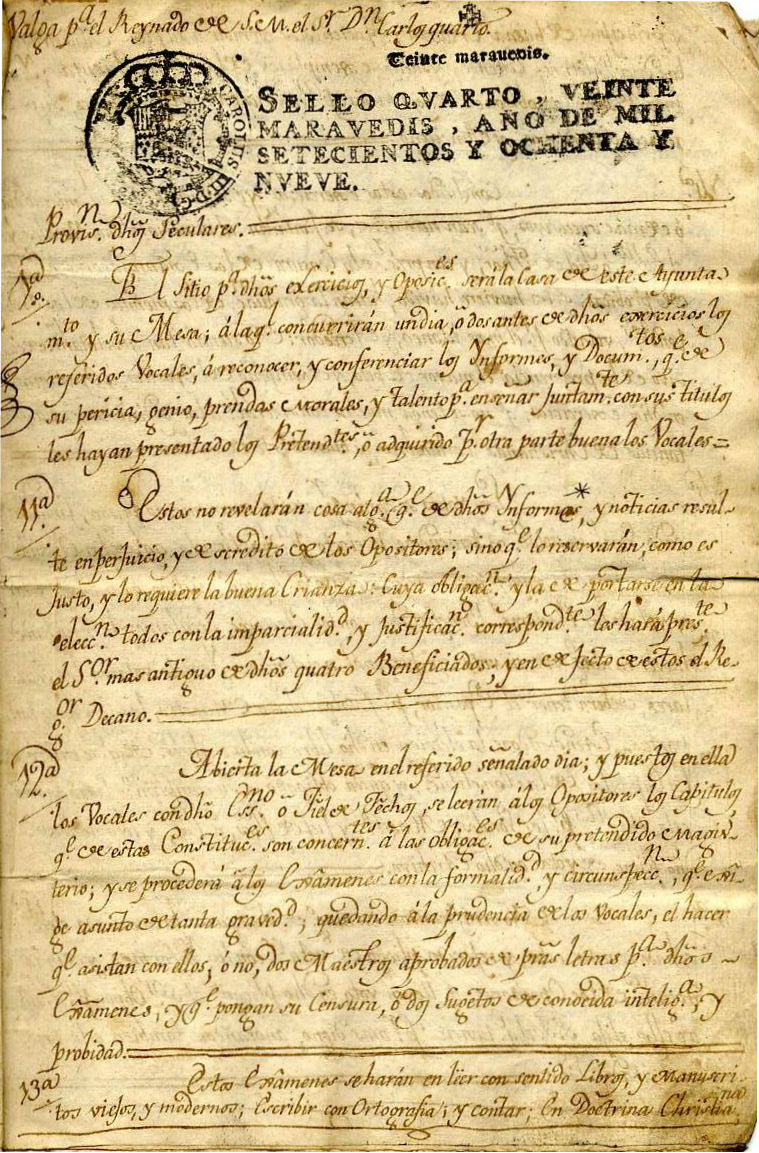 Valga pª. el Reynado de S.M. el Sr. Dn. Carlos quarto.
Veinte maravedis.
SELLO QVARTO, VEINTE
MARAVEDIS, AÑO DE MIL
SETECIENTOS Y OCHENTA Y
NVEVE.
CAROLUS III. D. G.
Provisn. dhos Seculares.
10ª. El sitio pª. dhos exercicios, y Oposices. será la Casa de este Ayunta-
mto. y su Mesa; á la ql. concurrirán un dia, ó dos antes de dhos exercicios los
referidos Vocales, á reconocer, y conferenciar los Ynformes, y Documtos., qe. de
su pericia, genio, prendas Morales, y talento pª. enseñar juntamte. con sus titulos
les hayan presentado los Pretendtes., ó adquirido pr. otra parte buena los Vocales=
11ª. Estos no revelarán cosa algª. qe. de dhos Ynformes, y noticias resul-
te en perjuicio, y descredito de los Opositores; sino qe. lo reservarán, como es
justo, y lo requiere la buena Crianza: Cuya obligacn. y la de portarse en la
eleccn. todos con la imparcialidd., y justificacn. correspondte. les hará preste.
el Sor. mas antiguo de dhos quatro Beneficiados, y en defecto de estos el Re-
gor. Decano.
12ª. Abierta la Mesa en el referido señalado dia; y puestos en ella
los Vocales con dho Essno. ó Fiel de Fechos, se leerán á los Opositores los Capitulos,
qe. de estas Constituces. son concerntes. á las obligaces. de su pretendido Magis-
terio; y se procederá á los Exâmenes con la formalidd., y circunspeccn., qe. exî-
ge asunto de tanta gravedd.; quedando á la prudencia de los Vocales, el hacer
qe. asistan con ellos, ó no, dos Maestros aprobados de prâs letras pª. dhos
Exâmenes, y qe. pongan su Censura, ó dos Sugetos de conocida inteligª., y
probidad.
13ª. Estos Exâmenes se harán en leer con sentido Libros, y Manuscri-
tos viejos, y modernos; Escribir con Ortografia; y contar; En Doctrina Christiana